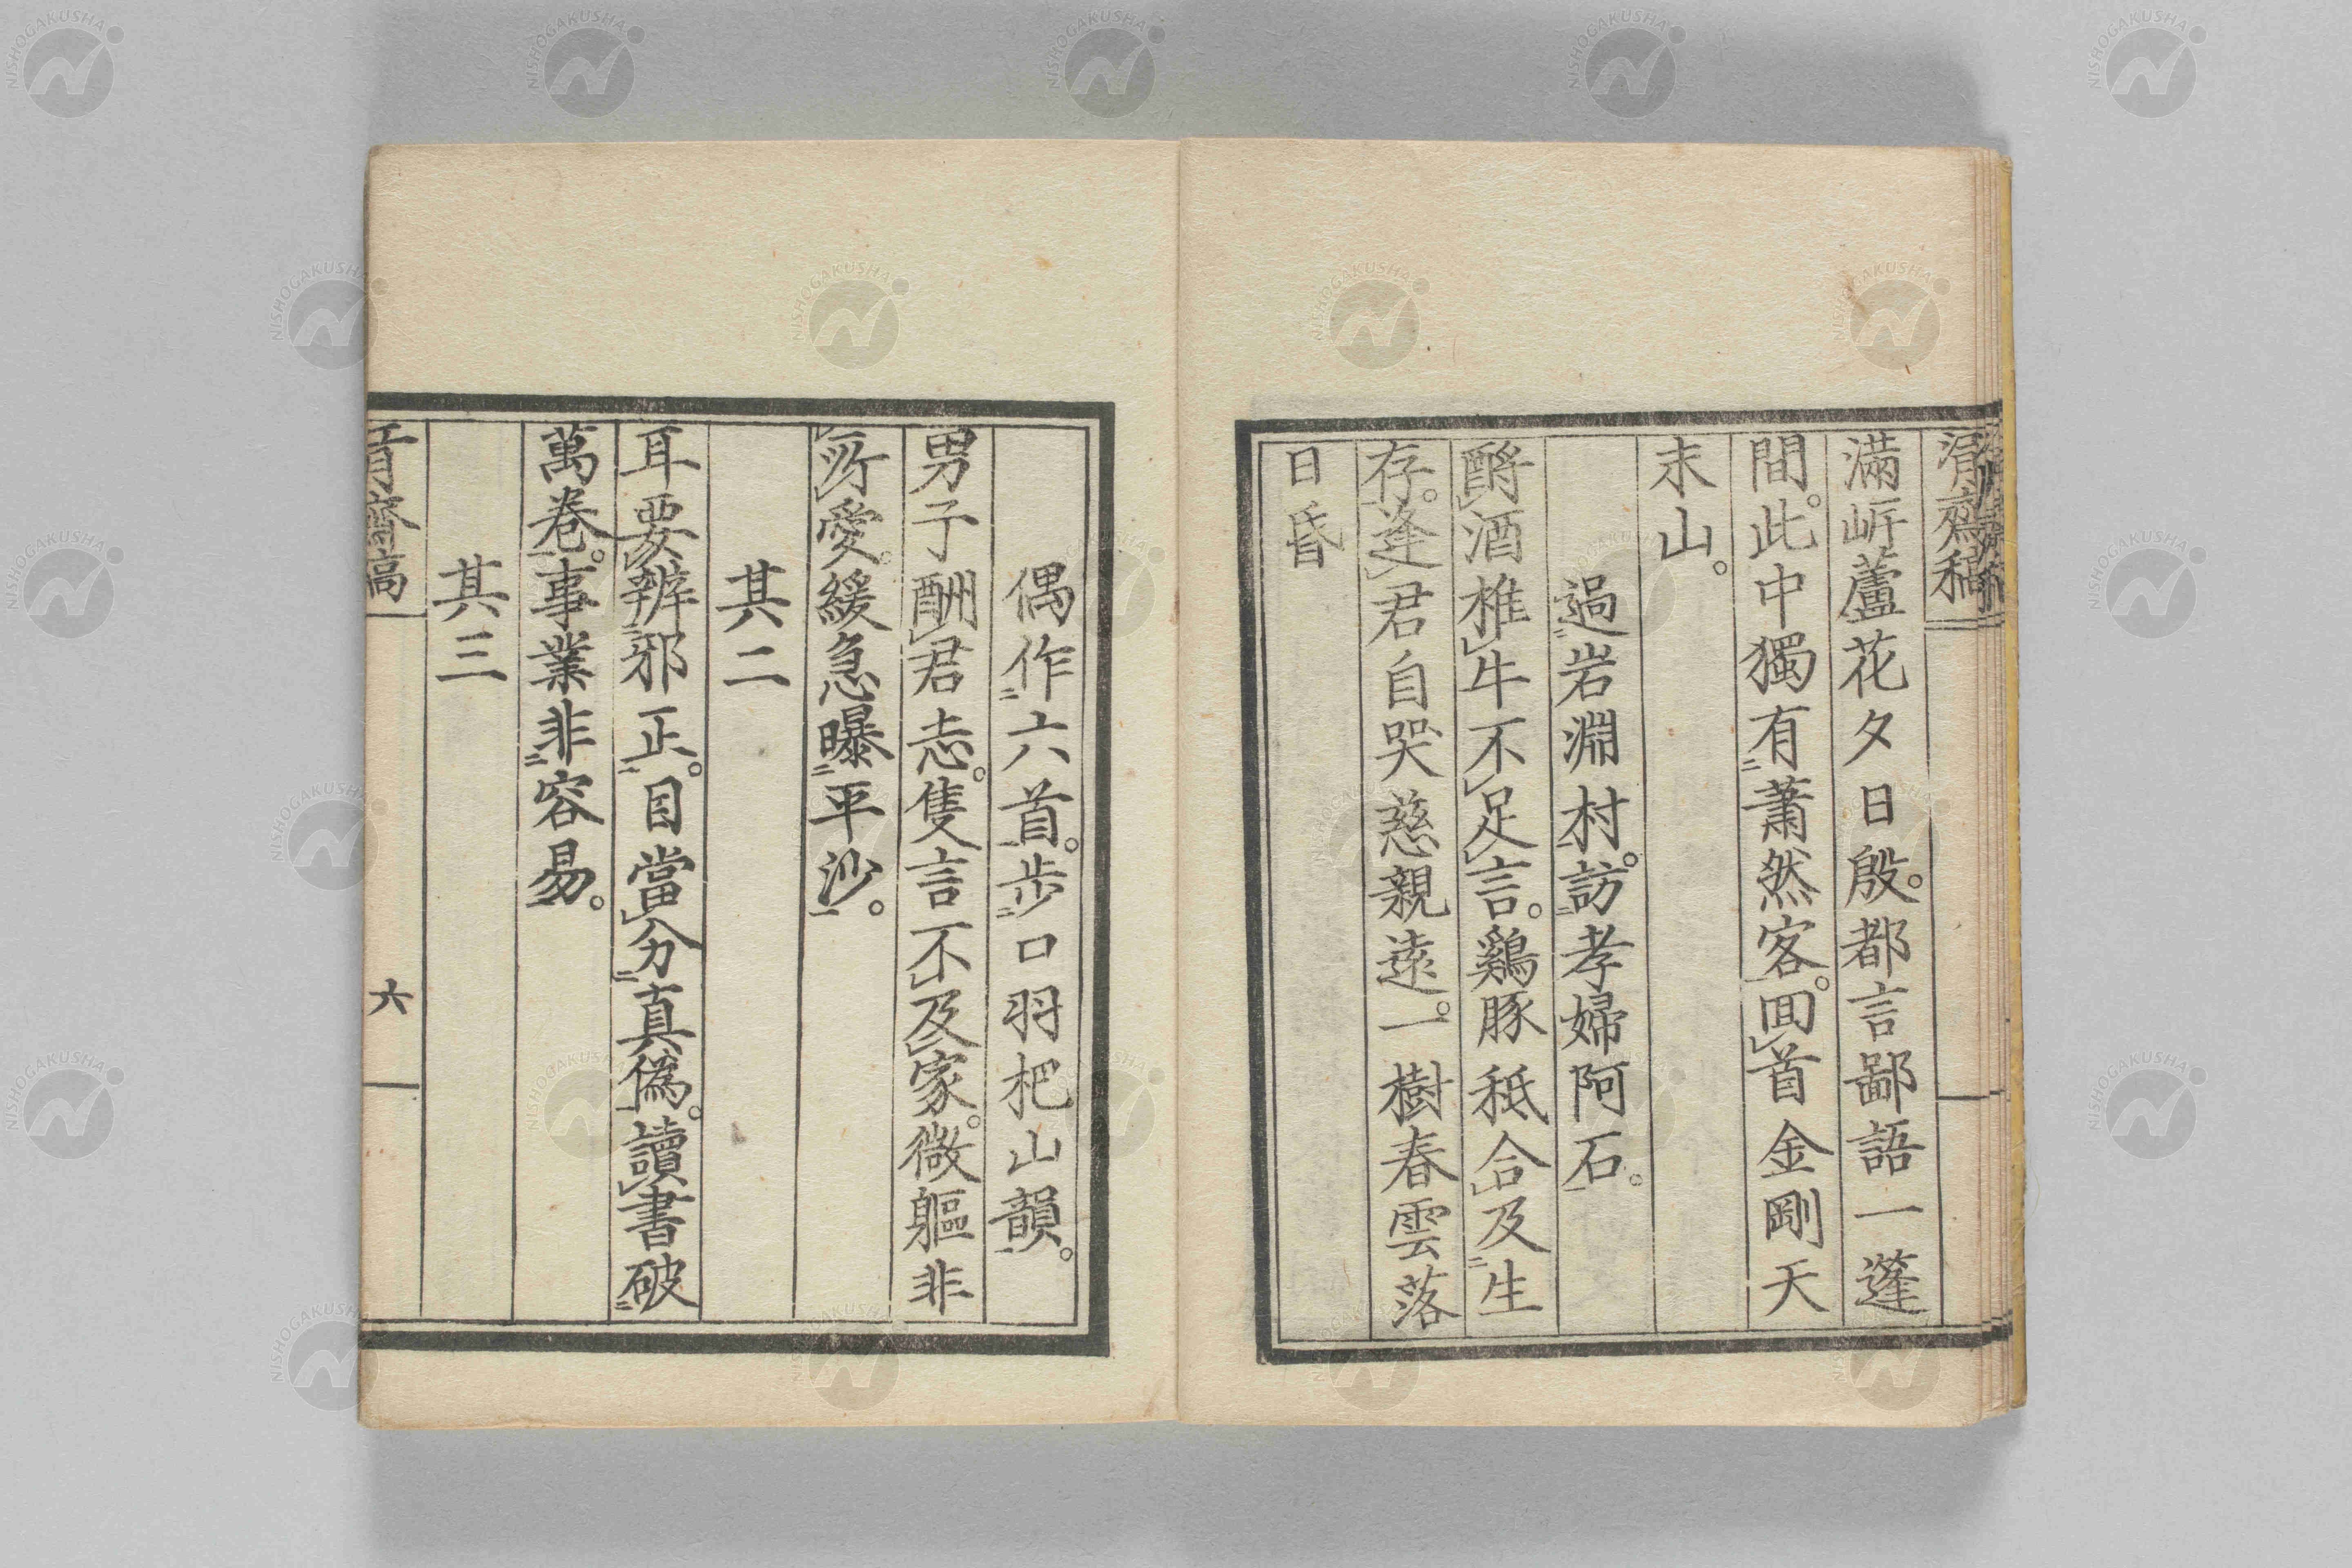 滿岍蘆花夕日殷。都言鄙語一蓬
間。此中獨有蕭然客。回首金剛天
末山。
過岩淵村。訪孝婦阿石。
酹酒椎牛不足言。鷄豚秖合及生
存。逢君自哭慈親遠。一樹春雲落
日昏
偶作六首。步口羽杷山韻。
男子酬君志。隻言不及家。微軀非
所愛。緩急曝平沙。
其二
耳要辨邪正。目當分真僞。讀書破
萬卷。事業非容易。
其三
六
NISHOGAKUSHA